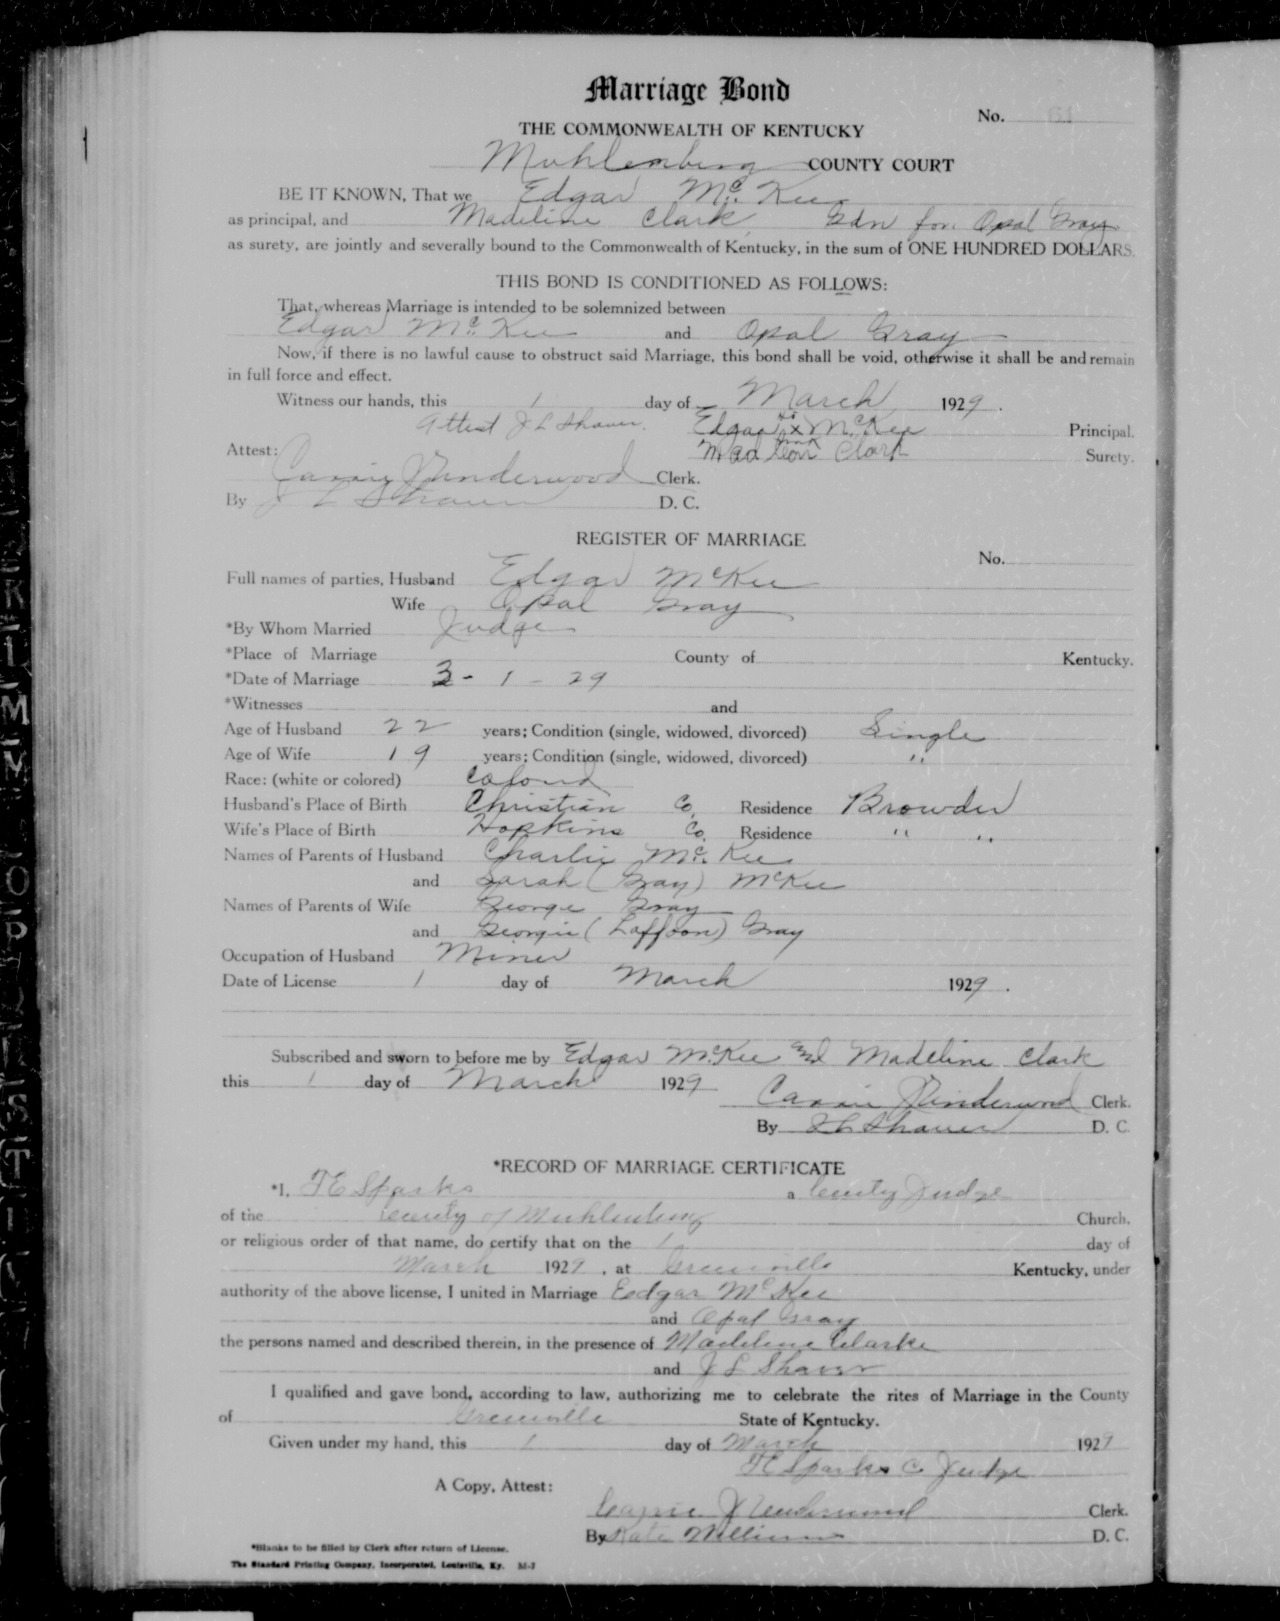 Marriage Bond
No.
THE COMMONWEALTH OF KENTUCKY
Muhlenberg COUNTY COURT
BE IT KNOWN, That we Edgar McKee
as principal, and Madeline Clark, Gdn for Opal Gray
as surety, are jointly and severally bound to the Commonwealth of Kentucky, in the sum of ONE HUNDRED DOLLARS.
THIS BOND IS CONDITIONED AS FOLLOWS:
That, whereas Marriage is intended to be solemnized between
Edgar McKee and Opal Gray
Now, if there is no lawful cause to obstruct said Marriage, this bond shall be void, otherwise it shall be and remain
in full force and effect.
Witness our hands, this 1 day of March 1929.
Attest J L Shaver. Edgar his x mark McKee Principal.
Attest: Madleon Clark Surety.
Carrie J Underwood Clerk.
By J L Shaver D. C.
REGISTER OF MARRIAGE
No.
Full names of parties, Husband Edgar McKee
Wife Opal Gray
*By Whom Married Judge
*Place of Marriage County of Kentucky.
*Date of Marriage 3 - 1 - 29
*Witnesses and
Age of Husband 22 years; Condition (single, widowed, divorced) Single
Age of Wife 19 years; Condition (single, widowed, divorced) "
Race: (white or colored) Colored
Husband's Place of Birth Christian Co. Residence Browder
Wife's Place of Birth Hopkins Co. Residence " "
Names of Parents of Husband Charlie McKee
and Sarah (Gray) McKee
Names of Parents of Wife George Gray
and Georgie (Laffoon) Gray
Occupation of Husband Miner
Date of License 1 day of March 1929.
Subscribed and sworn to before me by Edgar McKee and Madeline Clark
this 1 day of March 1929
Carrie J Underwood Clerk.
By J L Shaver D. C.
*RECORD OF MARRIAGE CERTIFICATE
*I, T E Sparks a County Judge
of the County of Muhlenberg Church,
or religious order of that name, do certify that on the 1 day of
March 1929, at Greenville Kentucky, under
authority of the above license, I united in Marriage Edgar McKee
and Opal Gray
the persons named and described therein, in the presence of Madeline Clarke
and J L Shaver
I qualified and gave bond, according to law, authorizing me to celebrate the rites of Marriage in the County
of Greenville State of Kentucky.
Given under my hand, this 1 day of March 1929
T E Sparks C. Judge
A Copy, Attest:
Carrie J Underwood Clerk.
By Kate Williams D. C.
*Blanks to be filled by Clerk after return of License.
The Standard Printing Company, Incorporated, Louisville, Ky. M-7